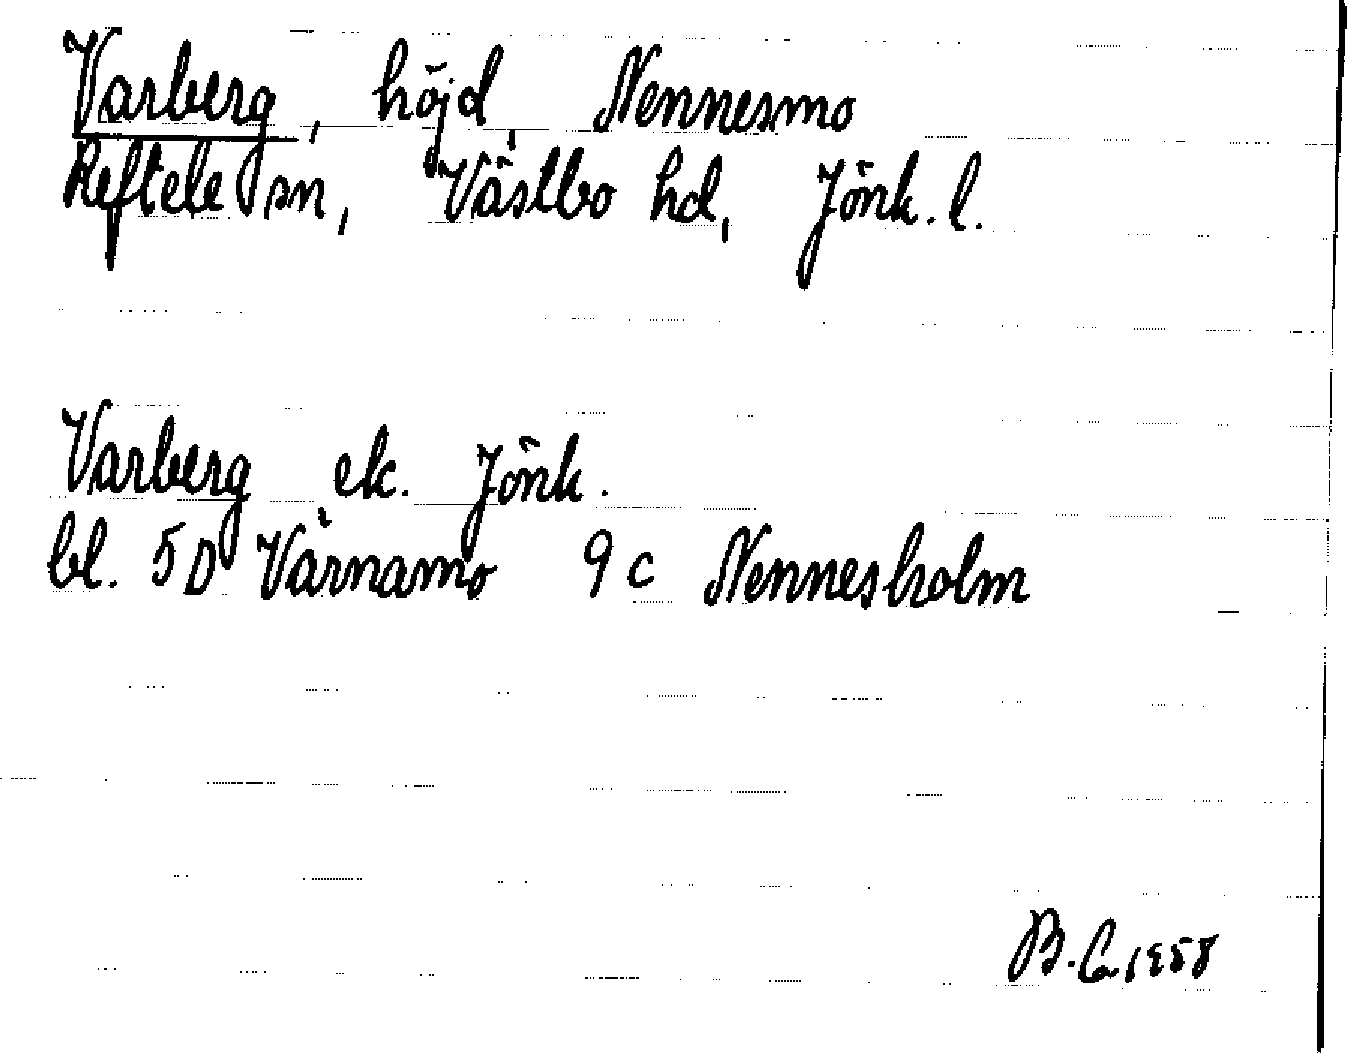 Varberg, höjd, Nennesmo
Reftele sn, Västbo hd, Jönk. l.
Varberg ek. Jönk.
bl. 5D Värnamo 9c Nennesholm
B. 1958